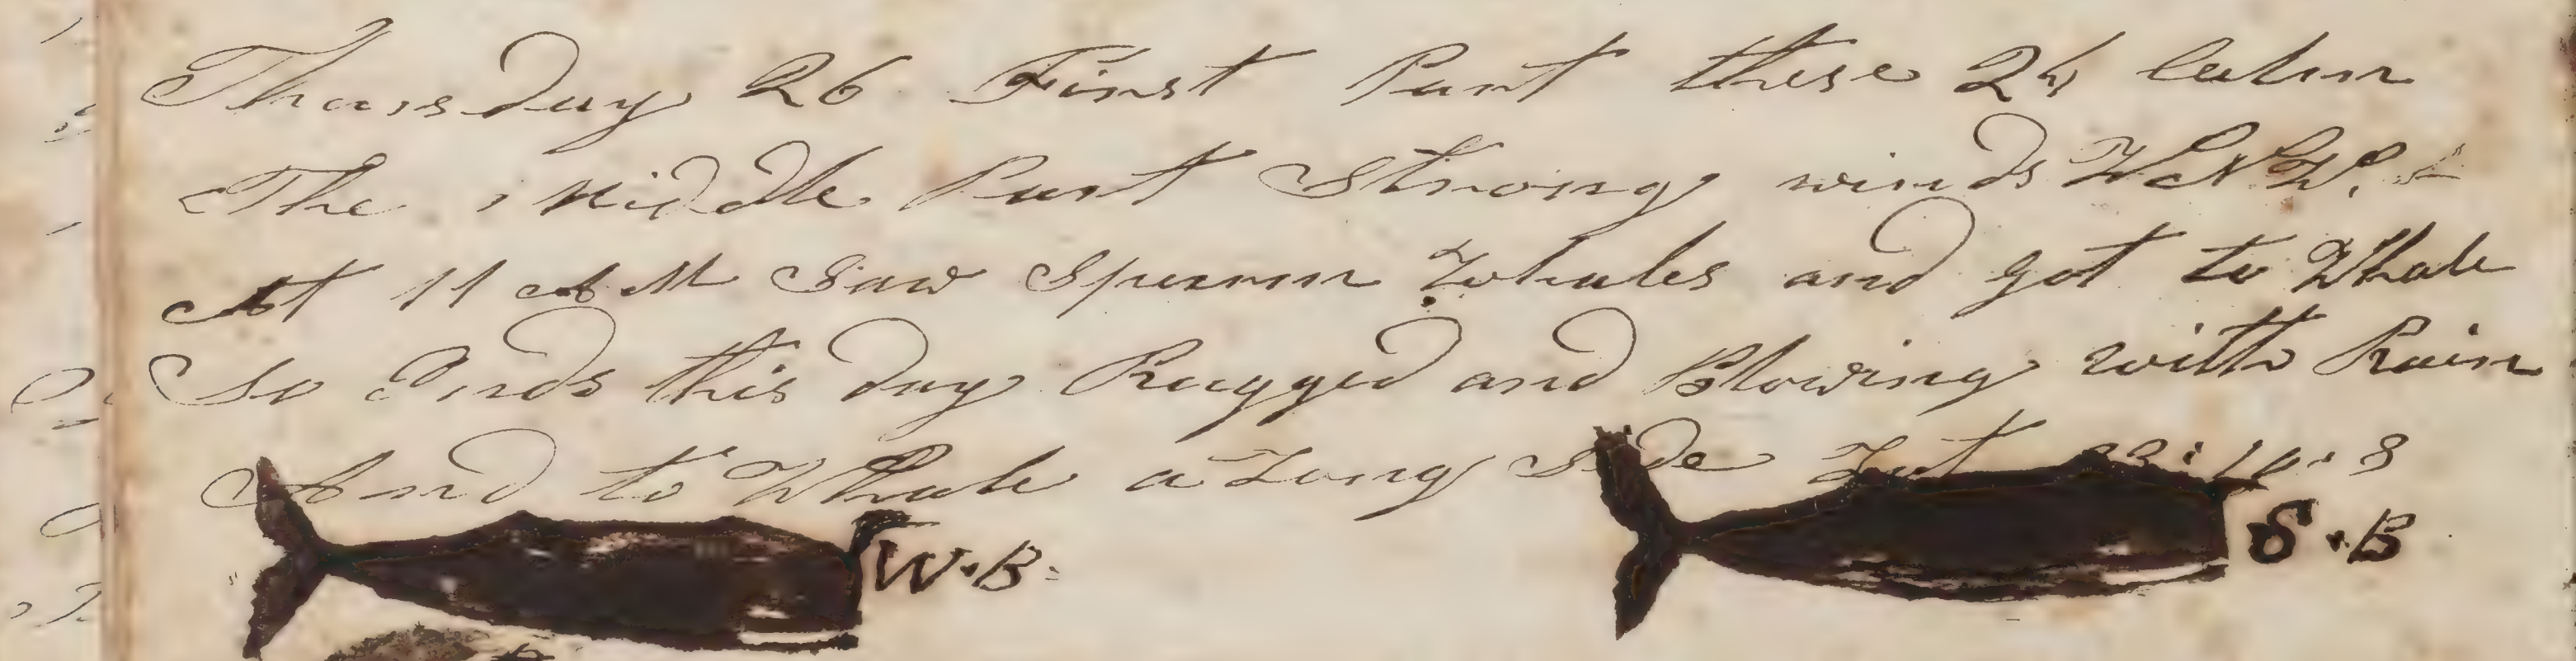 Thursday 26 First Part these 24 Calm
The Middle Part Strong winds WNW.
At 11 AM Saw Sperm Whales and got to Whale
So Ends this day Rugged and Blowing with Rain
And to Whale a Long Side Lat S
W.B. S.B